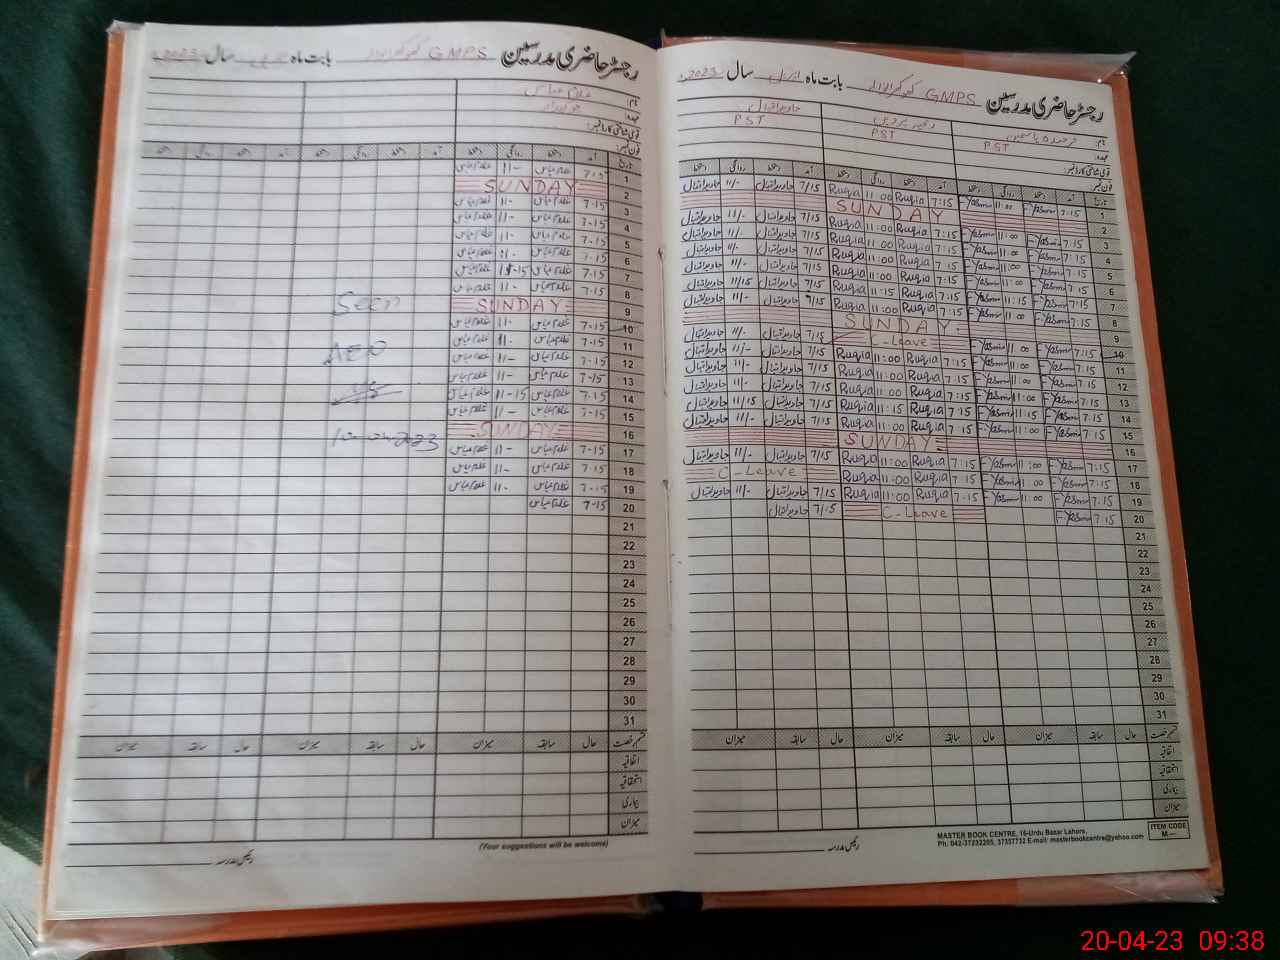 رجسٹر حاضری مدرسین GMPS بابت ماہ اپریل سال 2023ء
نام: فرخندہ یاسمین رقیہ پروین جاوید اقبال
عہدہ: PST PST PST
قومی شناختی کارڈ نمبر:
فون نمبر:
تاریخ آمد دستخط روانگی دستخط آمد دستخط روانگی دستخط آمد دستخط روانگی دستخط
1 7:15 F Yasmin 11:00 F Yasmin 7:15 Ruqia 11:00 Ruqia 7/15 جاوید اقبال 11/- جاوید اقبال
2 SUNDAY
3 7:15 F Yasmin 11:00 F Yasmin 7:15 Ruqia 11:00 Ruqia 7/15 جاوید اقبال 11/- جاوید اقبال
4 7:15 F Yasmin 11:00 F Yasmin 7:15 Ruqia 11:00 Ruqia 7/15 جاوید اقبال 11/- جاوید اقبال
5 7:15 F Yasmin 11:00 F Yasmin 7:15 Ruqia 11:00 Ruqia 7/15 جاوید اقبال 11/- جاوید اقبال
6 7:15 F Yasmin 11:00 F Yasmin 7:15 Ruqia 11:00 Ruqia 7/15 جاوید اقبال 11/- جاوید اقبال
7 7:15 F Yasmin 11:15 F Yasmin 7:15 Ruqia 11:15 Ruqia 7/15 جاوید اقبال 11/15 جاوید اقبال
8 7:15 F Yasmin 11:00 F Yasmin 7:15 Ruqia 11:00 Ruqia 7/15 جاوید اقبال 11/- جاوید اقبال
9 SUNDAY
10 7:15 F Yasmin 11:00 F Yasmin C-Leave 7/15 جاوید اقبال 11/- جاوید اقبال
11 7:15 F Yasmin 11:00 F Yasmin 7:15 Ruqia 11:00 Ruqia 7/15 جاوید اقبال 11/- جاوید اقبال
12 7:15 F Yasmin 11:00 F Yasmin 7:15 Ruqia 11:00 Ruqia 7/15 جاوید اقبال 11/- جاوید اقبال
13 7:15 F Yasmin 11:00 F Yasmin 7:15 Ruqia 11:00 Ruqia 7/15 جاوید اقبال 11/- جاوید اقبال
14 7:15 F Yasmin 11:15 F Yasmin 7:15 Ruqia 11:15 Ruqia 7/15 جاوید اقبال 11/15 جاوید اقبال
15 7:15 F Yasmin 11:00 F Yasmin 7:15 Ruqia 11:00 Ruqia 7/15 جاوید اقبال 11/- جاوید اقبال
16 SUNDAY
17 7:15 F Yasmin 11:00 F Yasmin 7:15 Ruqia 11:00 Ruqia 7/15 جاوید اقبال 11/- جاوید اقبال
18 7:15 F Yasmin 11:00 F Yasmin 7:15 Ruqia 11:00 Ruqia C-Leave
19 7:15 F Yasmin 11:00 F Yasmin 7:15 Ruqia 11:00 Ruqia 7/15 جاوید اقبال 11/- جاوید اقبال
20 7:15 F Yasmin C-Leave 7/15 جاوید اقبال
21
22
23
24
25
26
27
28
29
30
31
قسم رخصت حال سابقہ میزان حال سابقہ میزان حال سابقہ میزان
اتفاقیہ
استحقاقیہ
بیماری
میزان
رئیس مدرسہ
MASTER BOOK CENTRE, 16-Urdu Bazar Lahore.
Ph: 042-37232205, 37357732 E-mail: masterbookcentre@yahoo.com
ITEM CODE
M—
رجسٹر حاضری مدرسین GMPS بابت ماہ سال 2023ء
نام: غلام عباس
عہدہ: چوکیدار
قومی شناختی کارڈ نمبر:
فون نمبر:
تاریخ آمد دستخط روانگی دستخط آمد دستخط روانگی دستخط آمد دستخط روانگی دستخط
1 7-15 غلام عباس 11- غلام عباس
2 SUNDAY
3 7-15 غلام عباس 11- غلام عباس
4 7-15 غلام عباس 11- غلام عباس
5 7-15 غلام عباس 11- غلام عباس
6 7-15 غلام عباس 11- غلام عباس
7 7-15 غلام عباس 11-15 غلام عباس
8 7-15 غلام عباس 11- غلام عباس
9 SUNDAY
10 7-15 غلام عباس 11- غلام عباس
11 7-15 غلام عباس 11- غلام عباس
12 7-15 غلام عباس 11- غلام عباس
13 7-15 غلام عباس 11- غلام عباس
14 7-15 غلام عباس 11-15 غلام عباس
15 7-15 غلام عباس 11- غلام عباس
16 SUNDAY
17 7-15 غلام عباس 11- غلام عباس
18 7-15 غلام عباس 11- غلام عباس
19 7-15 غلام عباس 11- غلام عباس
20 7-15 غلام عباس
21
22
23
24
25
26
27
28
29
30
31
Seen
AEO
10-04-2023
قسم رخصت حال سابقہ میزان حال سابقہ میزان حال سابقہ میزان
اتفاقیہ
استحقاقیہ
بیماری
میزان
(Your suggestions will be welcome)
رئیس مدرسہ
20-04-23 09:38